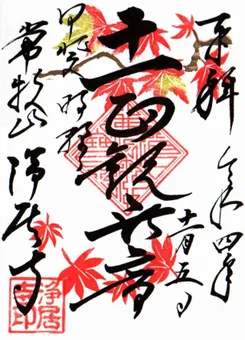 奉拝
令和四年
十一月五日
十一面観世音
常牧山
浄居寺
浄居寺印